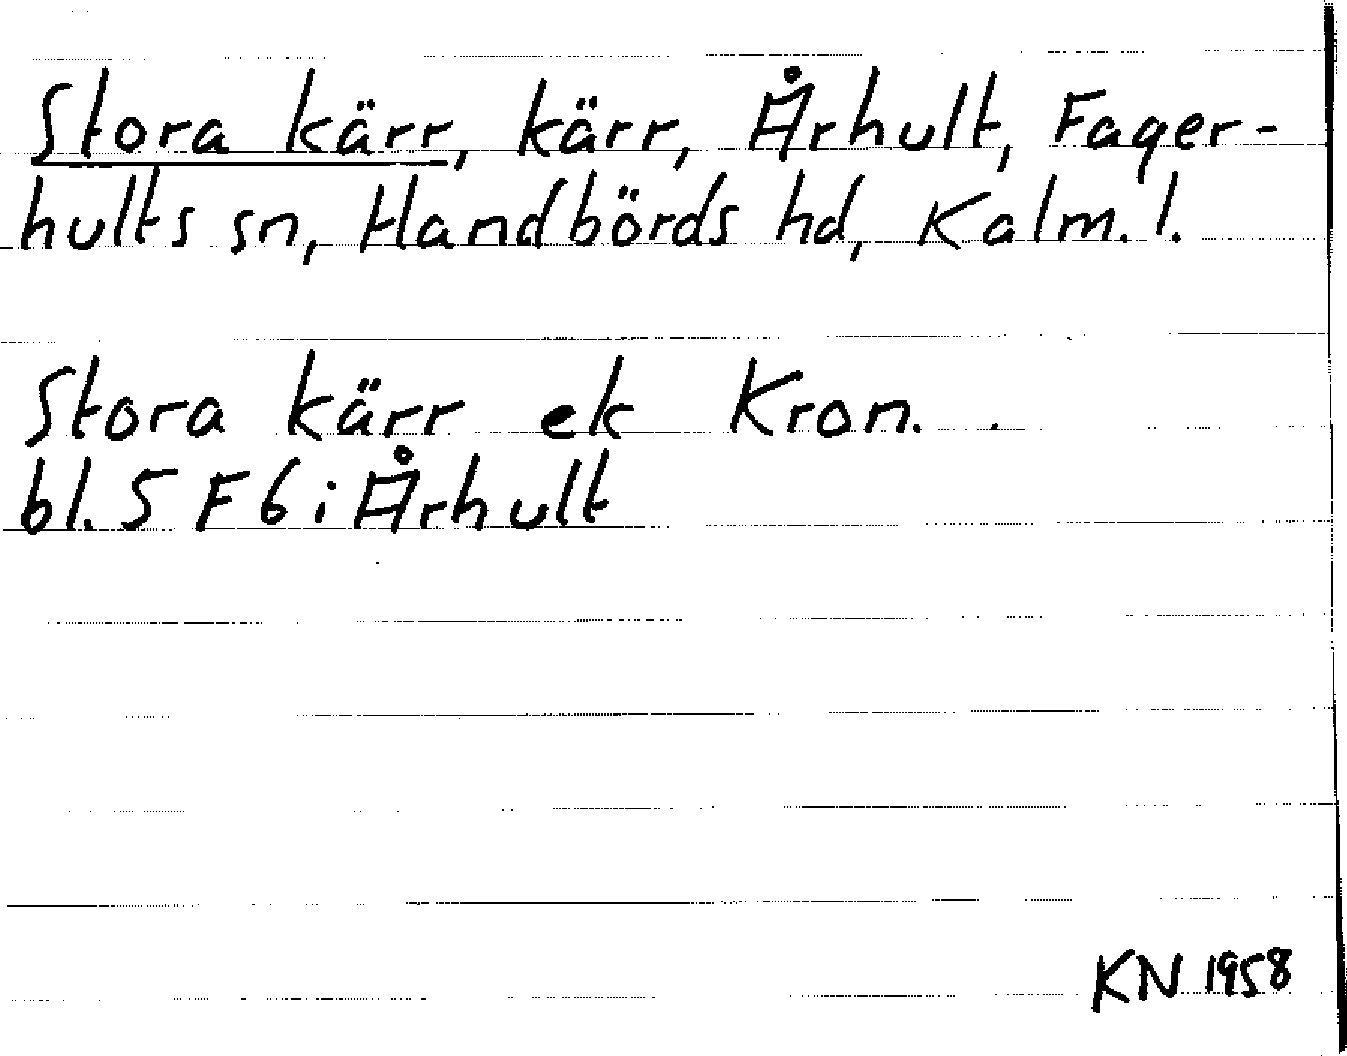 Stora kärr, kärr, Århult, Fager-
hults sn, Handbörds hd, Kalm. l.
Stora kärr ek Kron.
bl. 5 F 6 i Århult
KN 1958